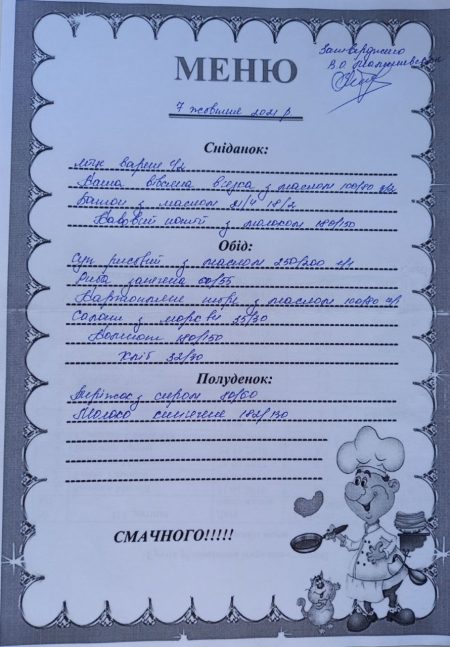 Затверджено
МЕНЮ
7 жовтня 2021 р.
Сніданок:
Яйце варене 1/2
Каша вівсяна в'язка з маслом 100/80
Батон з маслом 21/4 18/2
Кавовий напій з молоком 180/150
Обід:
Суп рисовий з маслом 250/200
Риба запечена 60/55
Картопляне пюре з маслом 100/80
Салат з моркви 35/30
Компот 180/150
Хліб 32/30
Полуденок:
Пиріжок з сиром 80/60
Молоко кип'ячене 182/130
СМАЧНОГО!!!!!